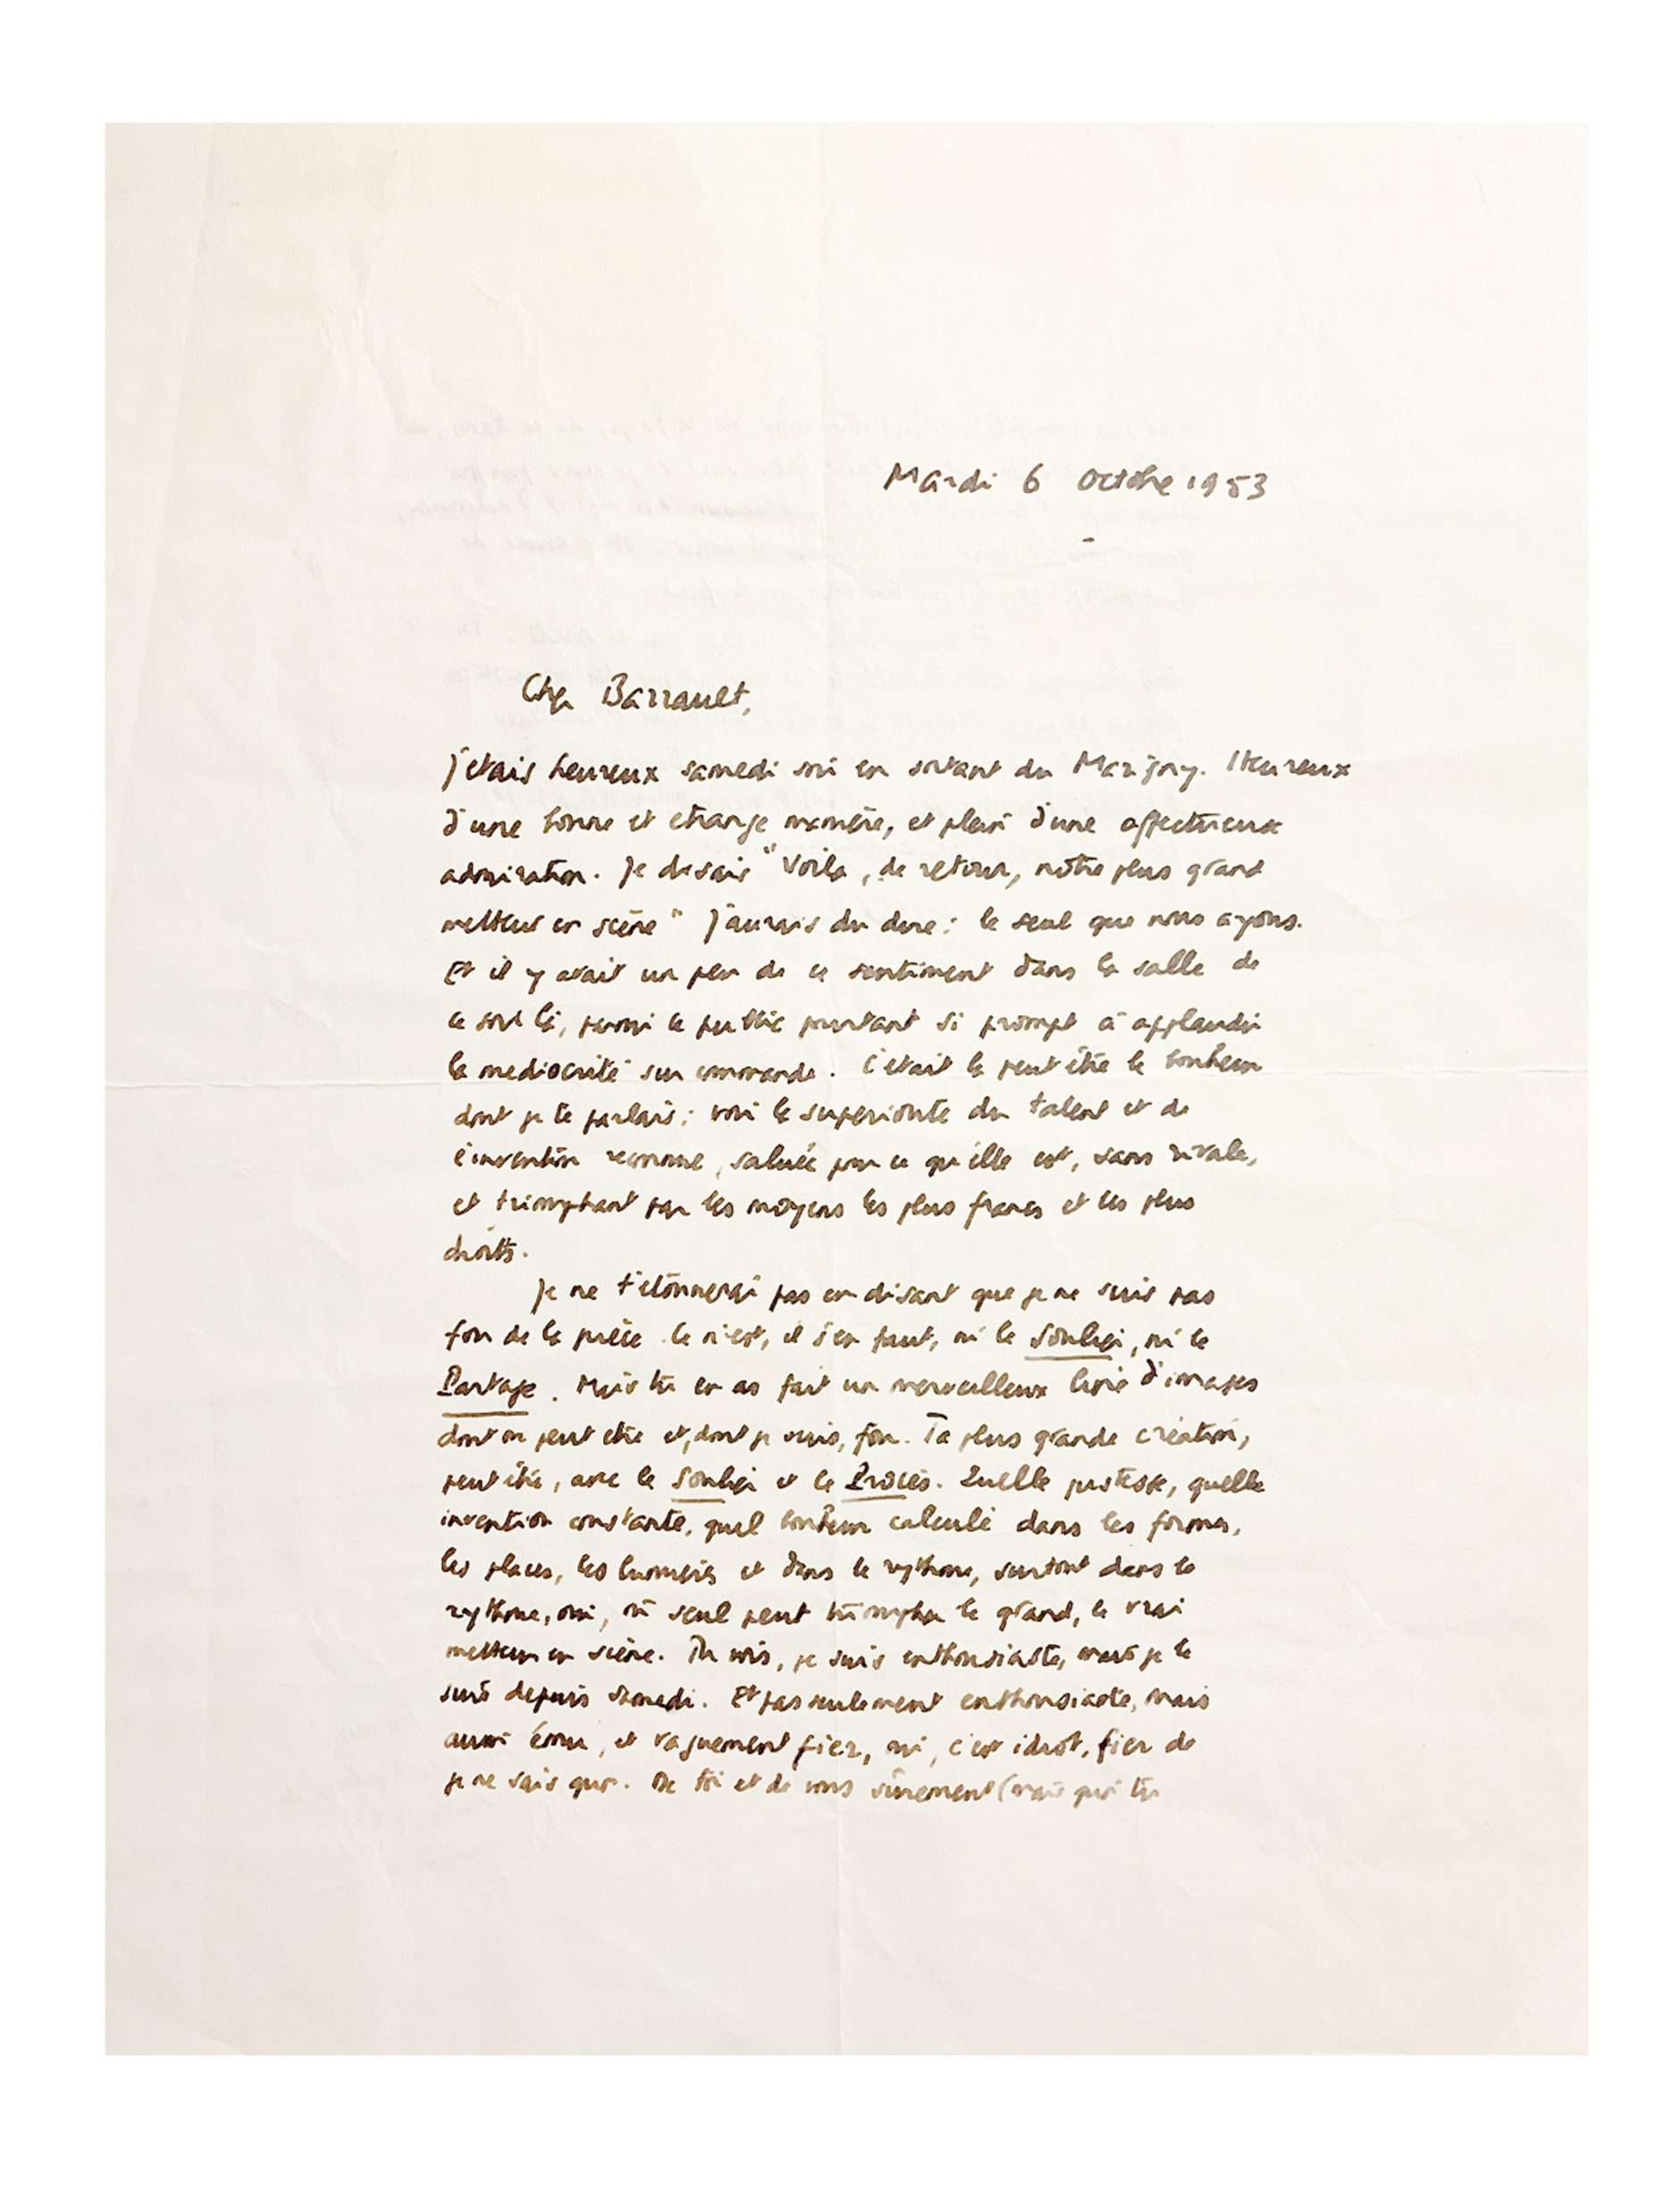 Mardi 6 Octobre 1953
-
Cher Barrault,
J'étais heureux samedi soir en sortant du Marigny. Heureux
d'une bonne et étrange manière, et plein d'une affectueuse
admiration. Je disais "Voilà, de retour, notre plus grand
metteur en scène" J'aurais du dire : le seul que nous ayons.
Et il y avait un peu de ce sentiment dans la salle de
ce soir là, parmi le public pourtant si prompt à applaudir
la médiocrité sur commande. C'était là peut être le bonheur
dont je te parlais : voir la supériorité du talent et de
l'invention reconnue, saluée pour ce qu'elle est, sans rivale,
et triomphant par les moyens les plus francs et les plus
droits.
Je ne t'étonnerai pas en disant que je ne suis pas
fou de la pièce. Ce n'est, il s'en faut, ni le Soulier, ni le
Partage. Mais tu en as fait un merveilleux livre d'images
dont on peut être et, dont je suis, fou. Ta plus grande création,
peut être, avec le Soulier et le Procès. Quelle justesse, quelle
invention constante, quel bonheur calculé dans les formes,
les places, les lumières et dans le rythme, surtout dans le
rythme, oui, où seul peut triompher le grand, le vrai
metteur en scène. Tu vois, je suis enthousiaste, mais je le
suis depuis samedi. Et pas seulement enthousiaste, mais
aussi ému, et vaguement fier, oui, c'est idiot, fier de
je ne sais quoi. De toi et de vous sûrement (mais quoi tu